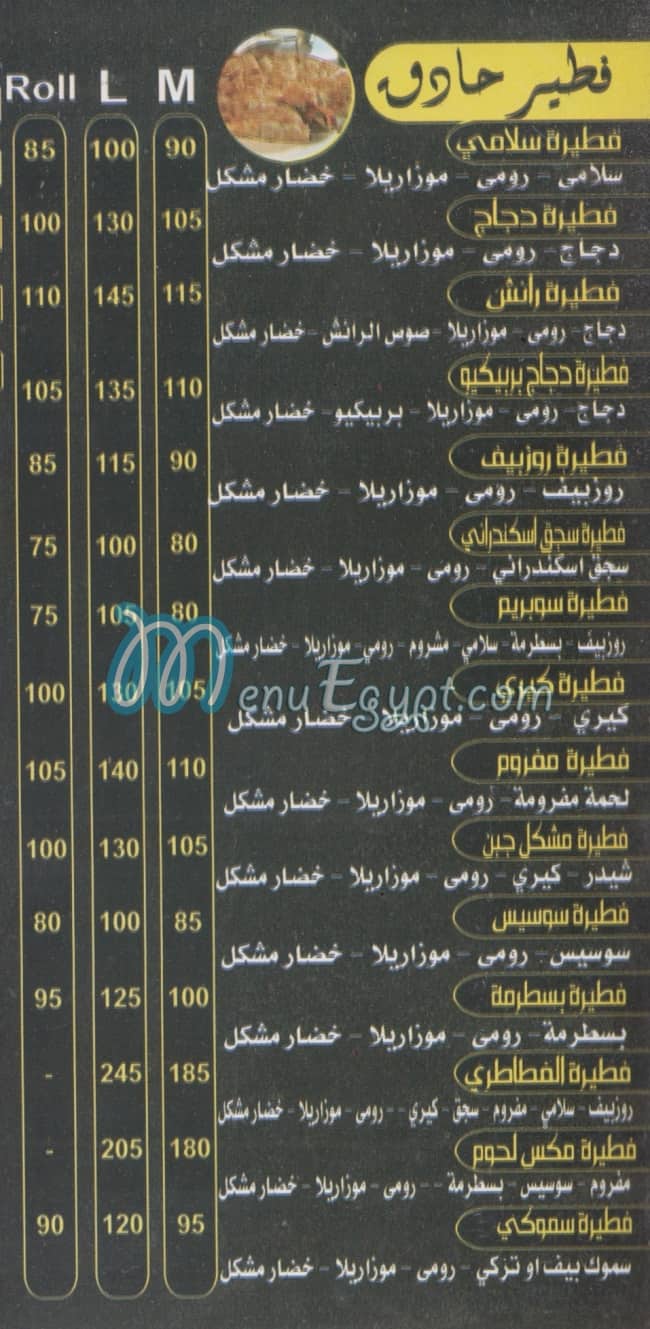 فطير حادق
M L Roll
فطيرة سلامي 90 100 85
سلامى - رومى - موزاريلا - خضار مشكل
فطيرة دجاج 105 130 100
دجاج - رومى - موزاريلا - خضار مشكل
فطيرة رانش 115 145 110
دجاج - رومى - موزاريلا - صوص الرانش - خضار مشكل
فطيرة دجاج بربيكيو 110 135 105
دجاج - رومى - موزاريلا - بربيكيو - خضار مشكل
فطيرة روزبيف 90 115 85
روزبيف - رومى - موزاريلا - خضار مشكل
فطيرة سجق اسكندراني 80 100 75
سجق اسكندراني - رومى - موزاريلا - خضار مشكل
فطيرة سوبريم 80 105 75
روزبيف - بسطرمة - سلامي - مشروم - رومي - موزاريلا - خضار مشكل
MenuEgypt.com
فطيرة كيري 105 130 100
كيري - رومى - موزاريلا - خضار مشكل
فطيرة مفروم 110 140 105
لحمة مفرومة - رومى - موزاريلا - خضار مشكل
فطيرة مشكل جبن 105 130 100
شيدر - كيري - رومى - موزاريلا - خضار مشكل
فطيرة سوسيس 85 100 80
سوسيس - رومى - موزاريلا - خضار مشكل
فطيرة بسطرمة 100 125 95
بسطرمة - رومى - موزاريلا - خضار مشكل
فطيرة الفطاطري 185 245 -
روزبيف - سلامي - مفروم - سجق - كيري -- رومى - موزاريلا - خضار مشكل
فطيرة مكس لحوم 180 205 -
مفروم - سوسيس - بسطرمة -- رومى - موزاريلا - خضار مشكل
فطيرة سموكي 95 120 90
سموك بيف او تركي - رومى - موزاريلا - خضار مشكل